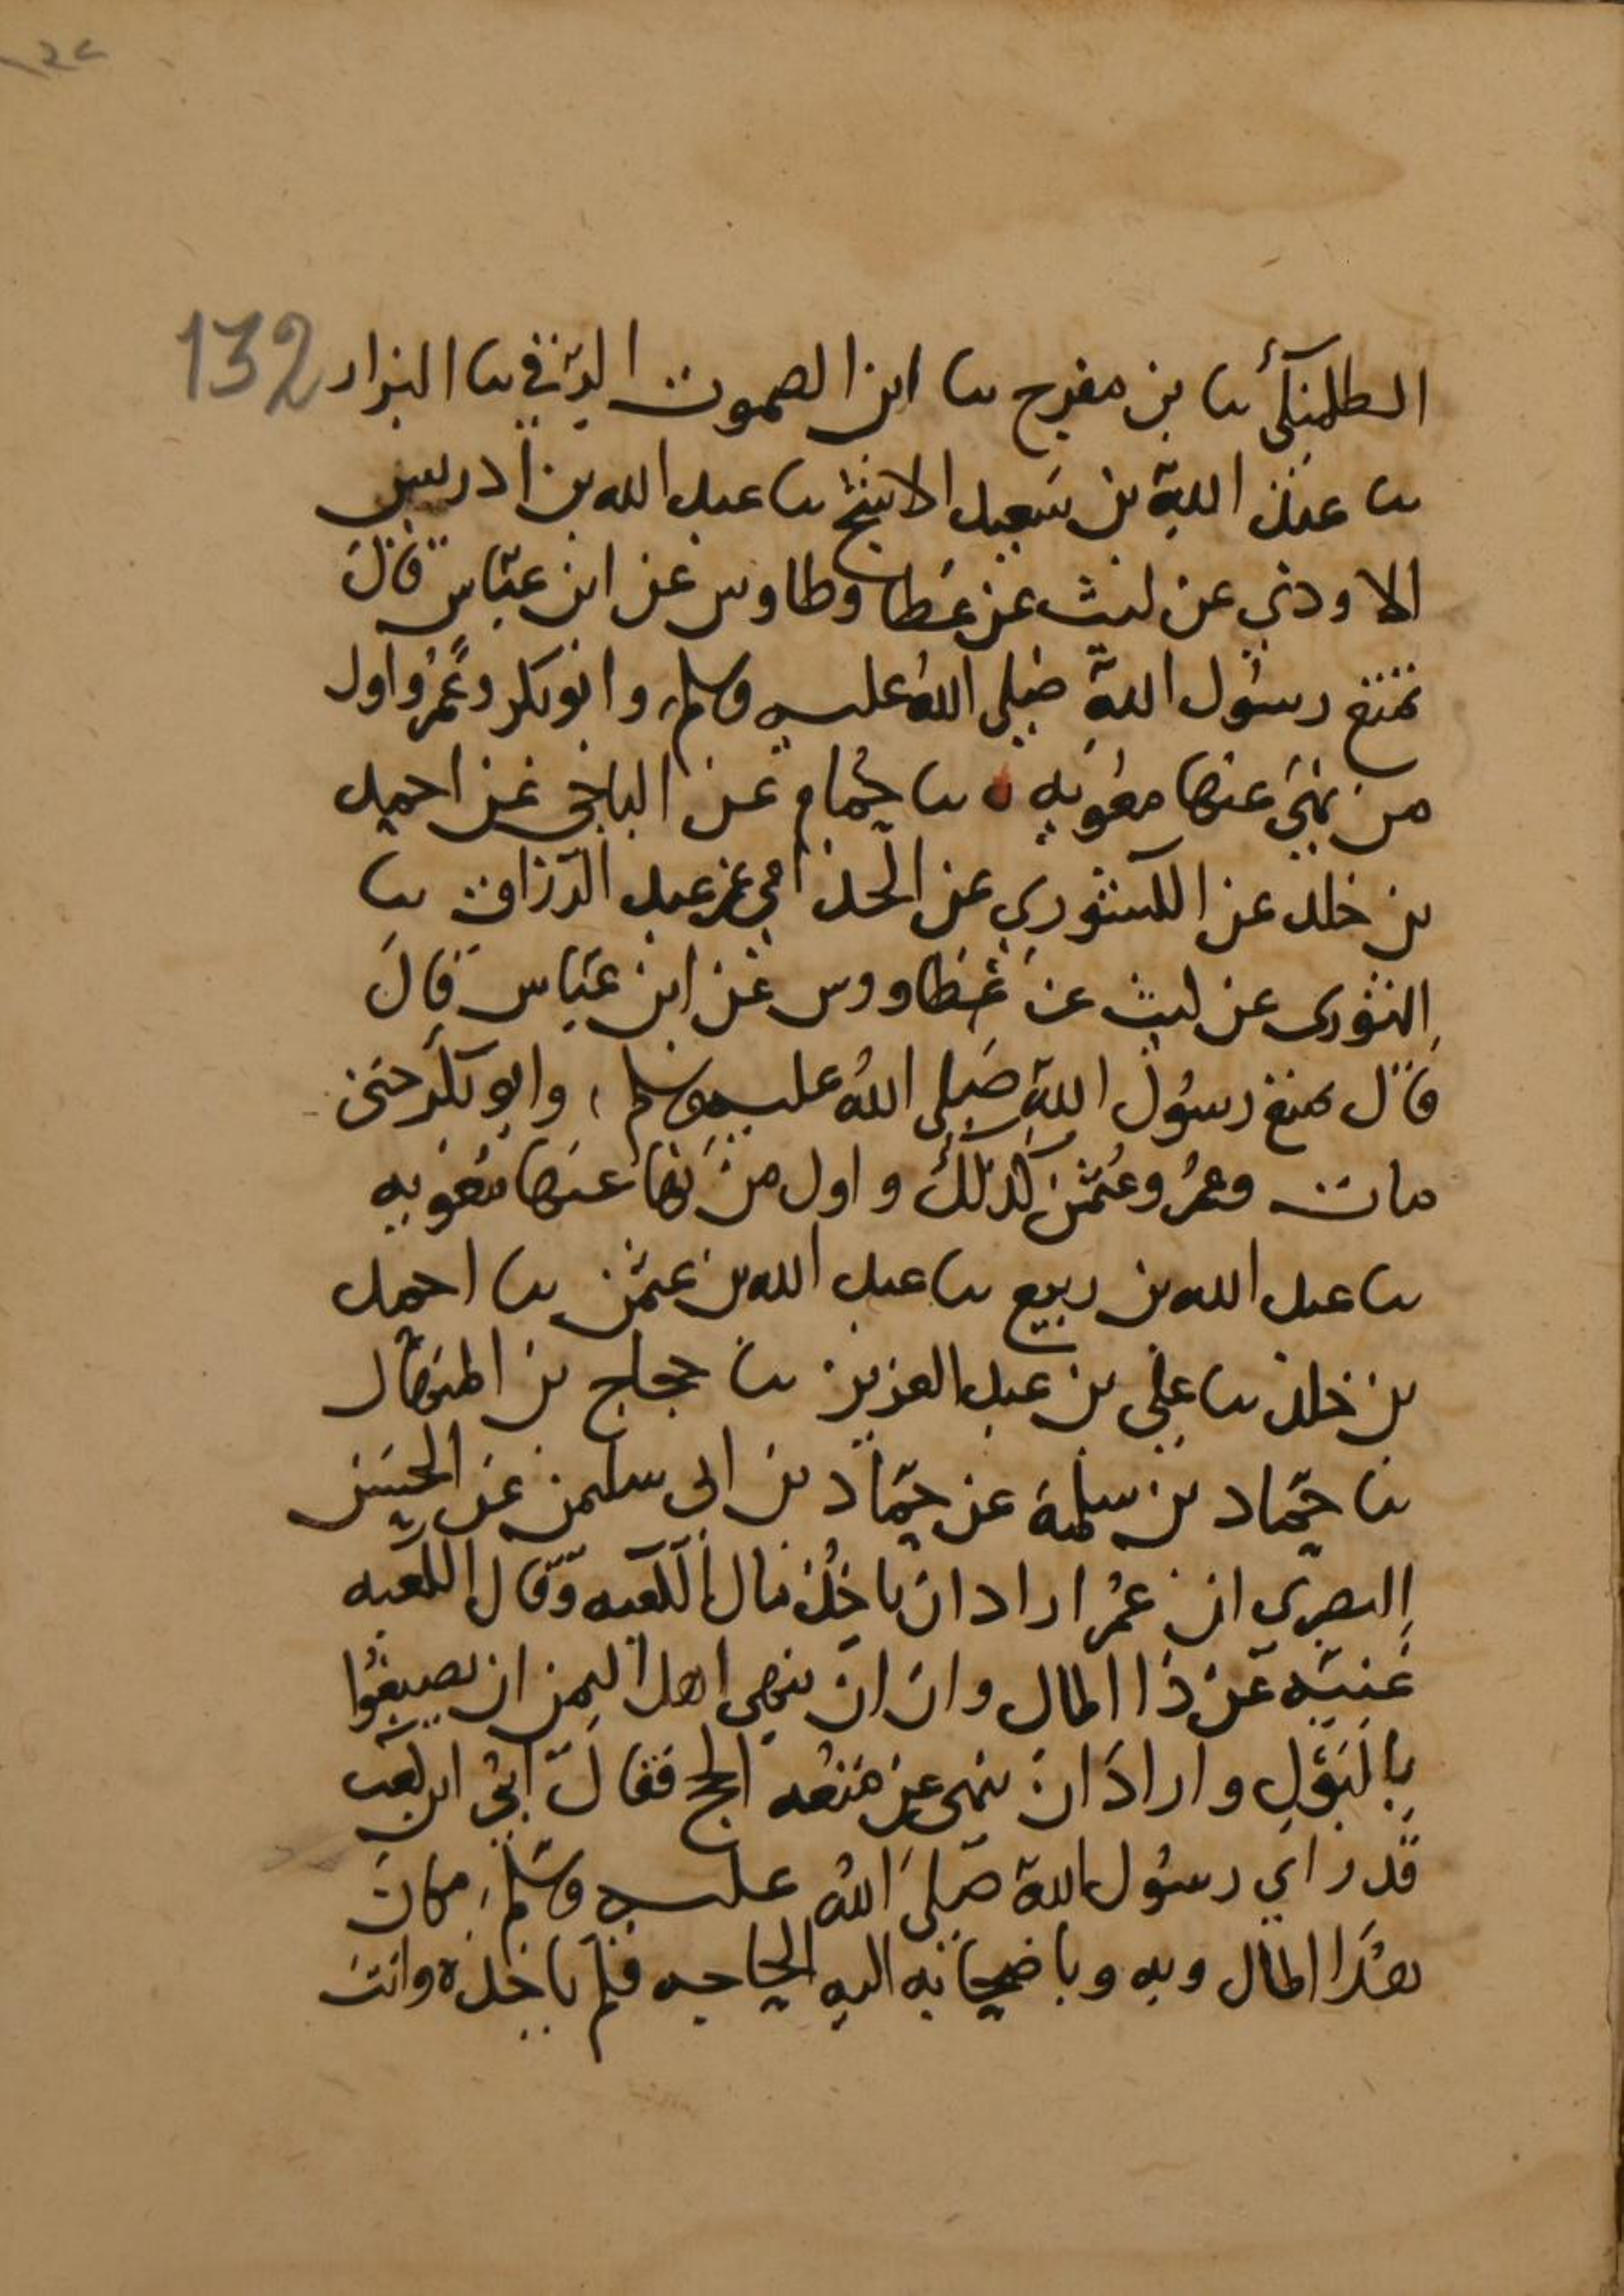 132
الطلمنكي ثنا بن مفرج ثنا ابن الصموت الرقي ثنا البزار
ثنا عبد الله بن سعيد الاشج ثنا عبد الله بن ادريس
الاودي عن ليث عن عطا وطاوس عن ابن عباس قال
تمتع رسول الله صلى الله عليه وسلم وابو بكر وعمر واول
من نهى عنها معويه ثنا حمام عن الباجي عن احمد
بن خلد عن الكشوري عن الحذافي عن عبد الرزاق ثنا
الثوري عن ليث عن عطا ووس عن ابن عباس قال
قال تمتع رسول الله صلى الله عليه وسلم وابو بكر حتى
مات وعمر وعثمن كذلك واول من نها عنها معويه
ثنا عبد الله بن ربيع ثنا عبد الله بن عثمن ثنا احمد
بن خلد ثنا علي بن عبد العزيز ثنا حجاج بن المنهال
ثنا حماد بن سلمة عن حماد بن ابي سليمن عن الحسن
البصري ان عمر اراد ان ياخذ مال الكعبه وقال الكعبه
غنيه عن ذا المال وان ان ينهى اهل اليمن ان يصبغوا
بالبول واراد ان ينهى عن متعه الحج فقال ابي ابن كعب
قد راى رسول الله صلى الله عليه وسلم مكان
هذا المال وبه وباصحابه اليه الحاجه فلم ياخذه وانت